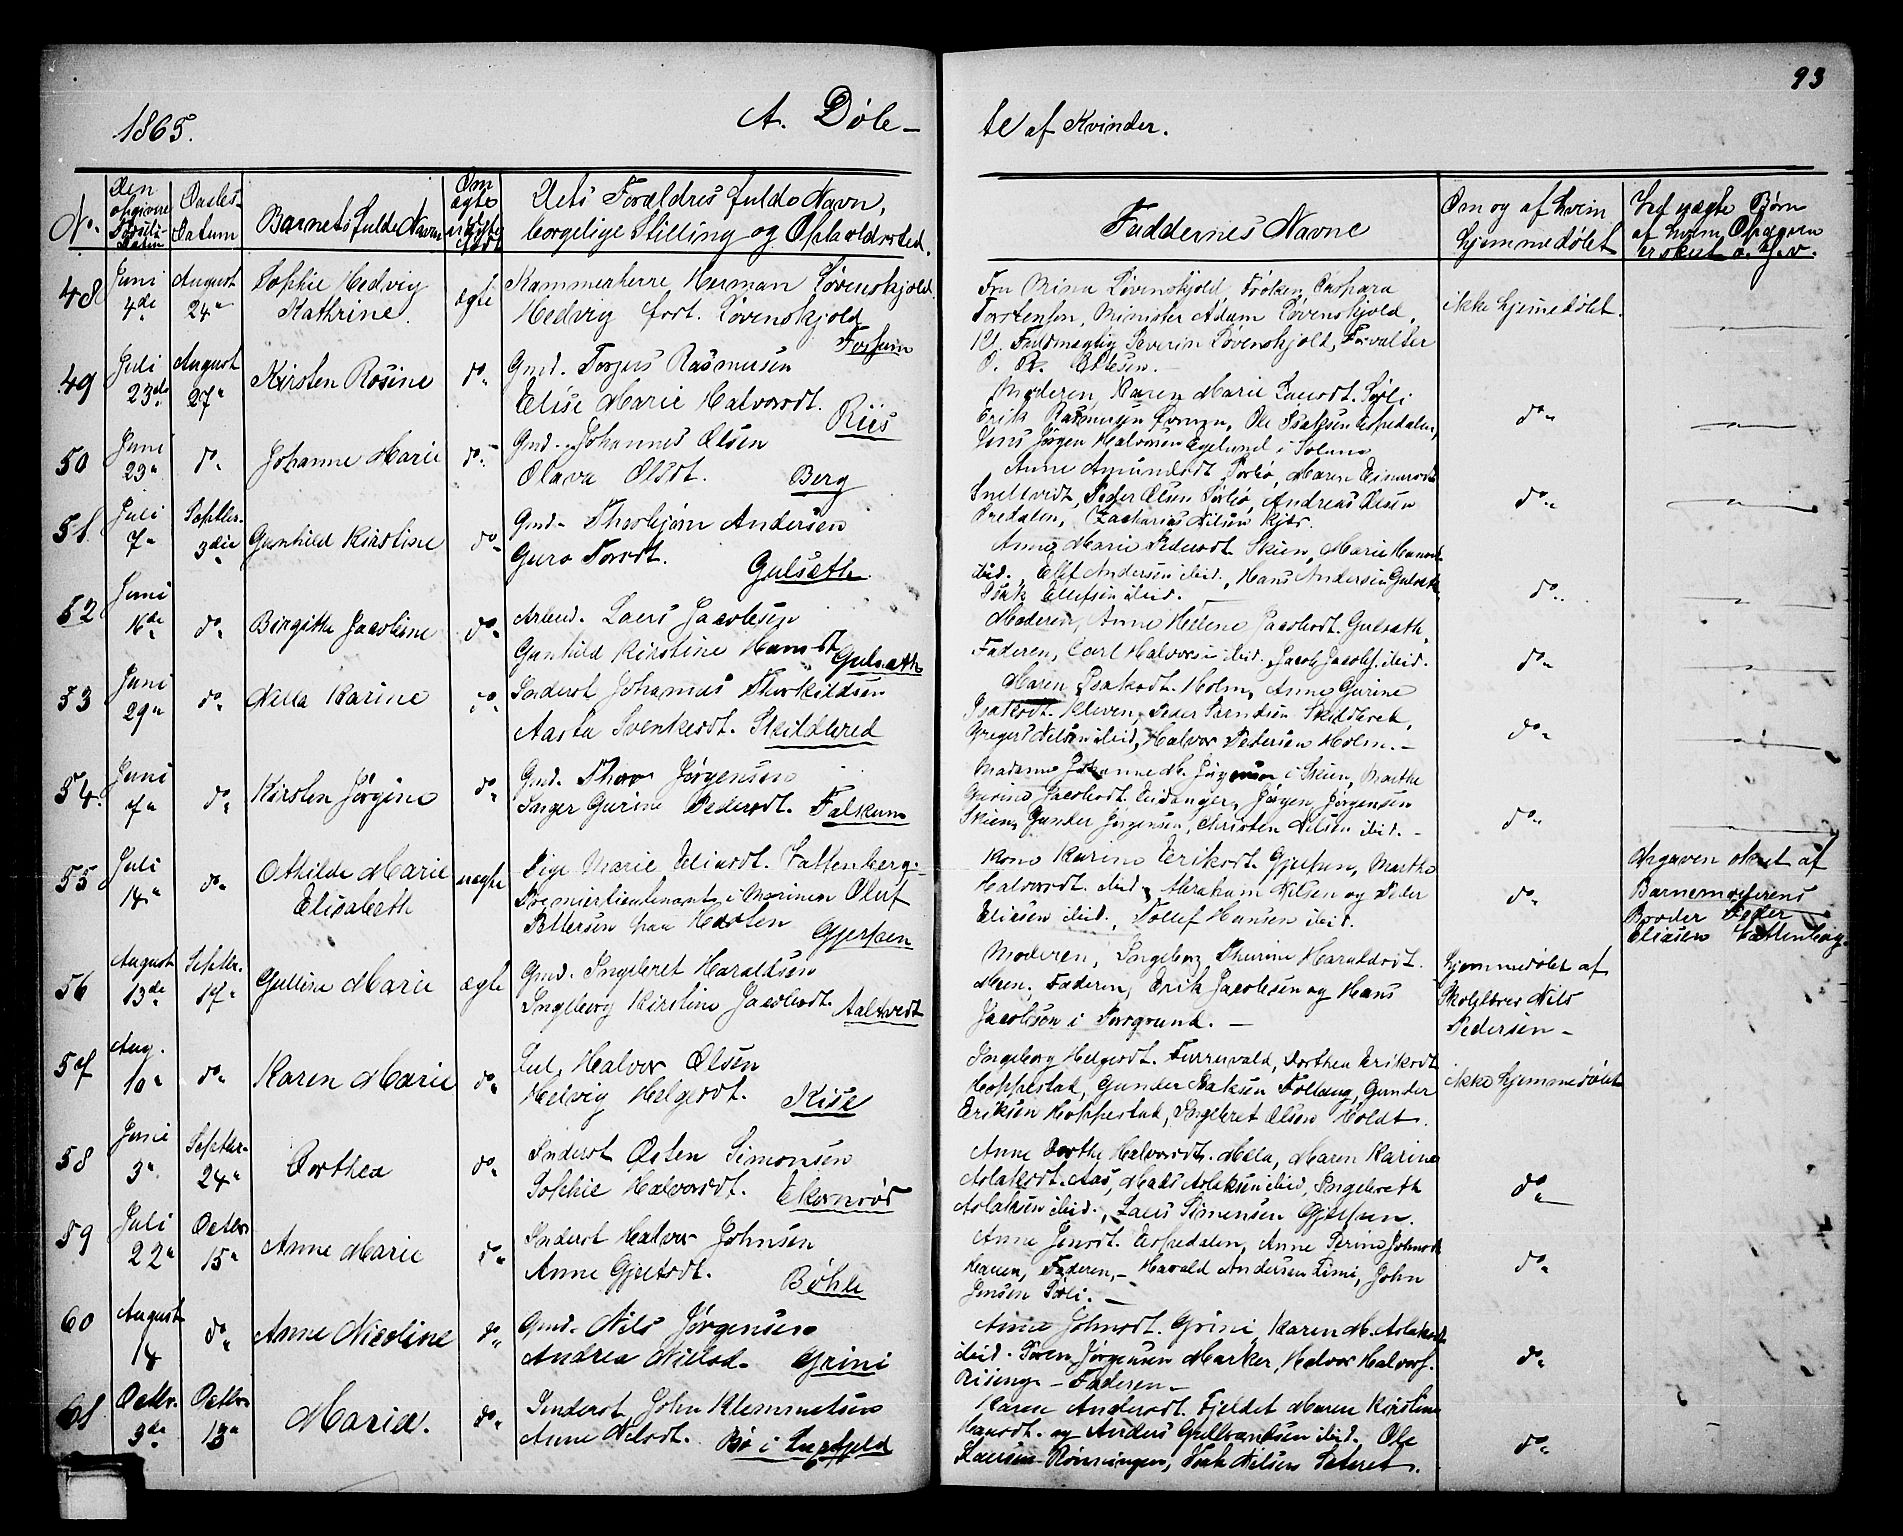 93
1865.
A. Døb-
te af Kvinder.
No.
Den opgivne Fødsels-Datum
Daabs-Datum
Barnets fulde Navn
Om ægte eller uægte født
Dets Forældres fulde Navn,
borgelige Stilling og Opholdssted.
Faddernes Navne
Om og af hvem
hjemmedøbt
48 Juni 4de August 24" Sophie Hedvig Kathrine. ægte
Kammerherre Herman Løvenskjold
Hedvig født Løvenskjold
Fossum
Fru Mina Løvenskjold, Frøken Caspara
Torstensen, Minister Adam Løvenskjold,
Fuldmægtig Severin Løvenskjold, Forvalter
ikke hjemmedøbt.
49 Juli 23de August 27" Kirsten Rosine do"
Gmd. Torjus Rasmusen
Elise Marie Halvorsdt.
Riis
Moderen, Karen Marie Larsdt. Søli
Erik Rasmusen, Ole Isaksen Espedalen,
Jens Jørgen Halvorsen Egelund i Solum
do"
50 Juni 23" do" Johanne Marie do"
Gmd. Johannes Olsen
Olava Olsdt. Berg
Anne Amundsdt
Peder Olsen, Andreas Olsen
Bredalen, Zacharias Nilsen Kjær.
do"
51. Juli 7" Septbr. 3die Gunhild Kirstine do"
Gmd. Thorbjørn Andersen
Guro Torsdt. Gulseth.
Anne Marie Pedersdt. Skien, Marie Hansdt.
ibid., Ellef Andersen ibid., Hans Andersen Gulseth,
Isak Ellefsen ibid.
do"
52 Juni 16de do" Birgitte Jacobine do"
Arbmd. Lars Jacobsen
Gunhild Kirstine Hansdt Gulseth
Moderen, Anne Helene Jacobsdt. Gulseth.
Faderen, Carl Halvorsen ibid. Jacob Jacobs. ibid.
do"
53 Juni 29" do" Karine do"
Inderst Johannes Thorkildsen
Aasta Svenkesdt. Skildbred
Maren Isaksdt. Holm, Anne Gurine
Isaksdt. Kleven, Peder
Gregert Nilsen ibid, Halvor Pedersen Holm.-
do"
54. Juni 7" do" Kirsten Jørgine do"
Gmd. Thor Jørgensen
Inger Gurine Pedersdt. Falkum
Madame Johanne M. Jørgensen i Skien, Marthe
Gurine Jacobsdt. Eidanger, Jørgen Jørgensen
Skien, Gunder Jørgensen, Christen Nilsen ibid.-
do"
55 Juli 14" do" Othilde Marie Elisabeth uægte
Pige Marie Eliasdt. Vattenberg;
Premierlieutenant i Marinen Oluf
Pettersen paa Horten Gjerpen
Kone Karine Eriksdt. Gjerpen, Marthe
Halvorsdt. ibid., Abraham Nilsen og Peder
Eliasen ibid., Tollef Hansen ibid.
do"
Opgaven skeet af
Barnemoderens
Broder Peder
Eliasen Vattenberg
56 August 13de Septbr. 17" Gulline Marie ægte
Gmd. Ingebret Haraldsen
Ingeborg Kirstine Jacobsdt. Aaltvedt
Moderen, Ingeborg Thurine Haraldsdt.
Moen, Faderen, Erik Jacobsen og Hans
Jacobsen i Porsgrund.-
hjemmedøbt af
Skolelærer Nils
Pedersen-
57 Aug. 10" do" Karen Marie do"
Halvor Olsen
Hedvig Helgesdt. Kise
Ingeborg Helgesdt. Furruvald, Dorthea Eriksdt
Hoppestad, Gunder Isaksen Follaug, Gunder
Eriksen Hoppestad, Ingebret Olsen Holdt.
ikke hjemmedøbt
58 Juni 3" Septbr. 24" Dorthea do"
Inderst Østen Simonsen
Sophie Halvorsdt. Ekornrød
Anne Dorthe Halvorsdt. Mela, Maren Karine
Aslaksdt. Aas, Mads Aslaksen ibid, Ingebreth
Aslaksen ibid., Lars Simensen Gjerpen.
do"
59 Juli 22" Octbr. 15" Anne Marie do"
Inderst Halvor Johnsen
Anne Gjertsdt. Bøhle
Anne Jensdt. Espedalen, Anne Serine Johnsdt
Hauen, Faderen,- Harald Andersen Limi, John
Jensen Søli.-
do"
60 August 14 do" Anne Nicoline do"
Gmd. Nils Jørgensen
Andrea Nilsd. Grini
Anne Johnsdt. Grini, Karen M. Aslaksdt
ibid. Søren Jørgensen Marker, Halvor Halvors.
Rising - Faderen-
do"
61 Octbr. 3de Octbr. 15" Maria. do"
Inderst John Klemmetsen
Anne Nilsdt. Bø i Luxefjeld
Karen Andersdt. Fjeldet Maren Kirstine
Hansdt. og Anders Gulbrandsen ibid. Ole
Larsen Rønningen, Isak Nilsen Sæteret.
do"